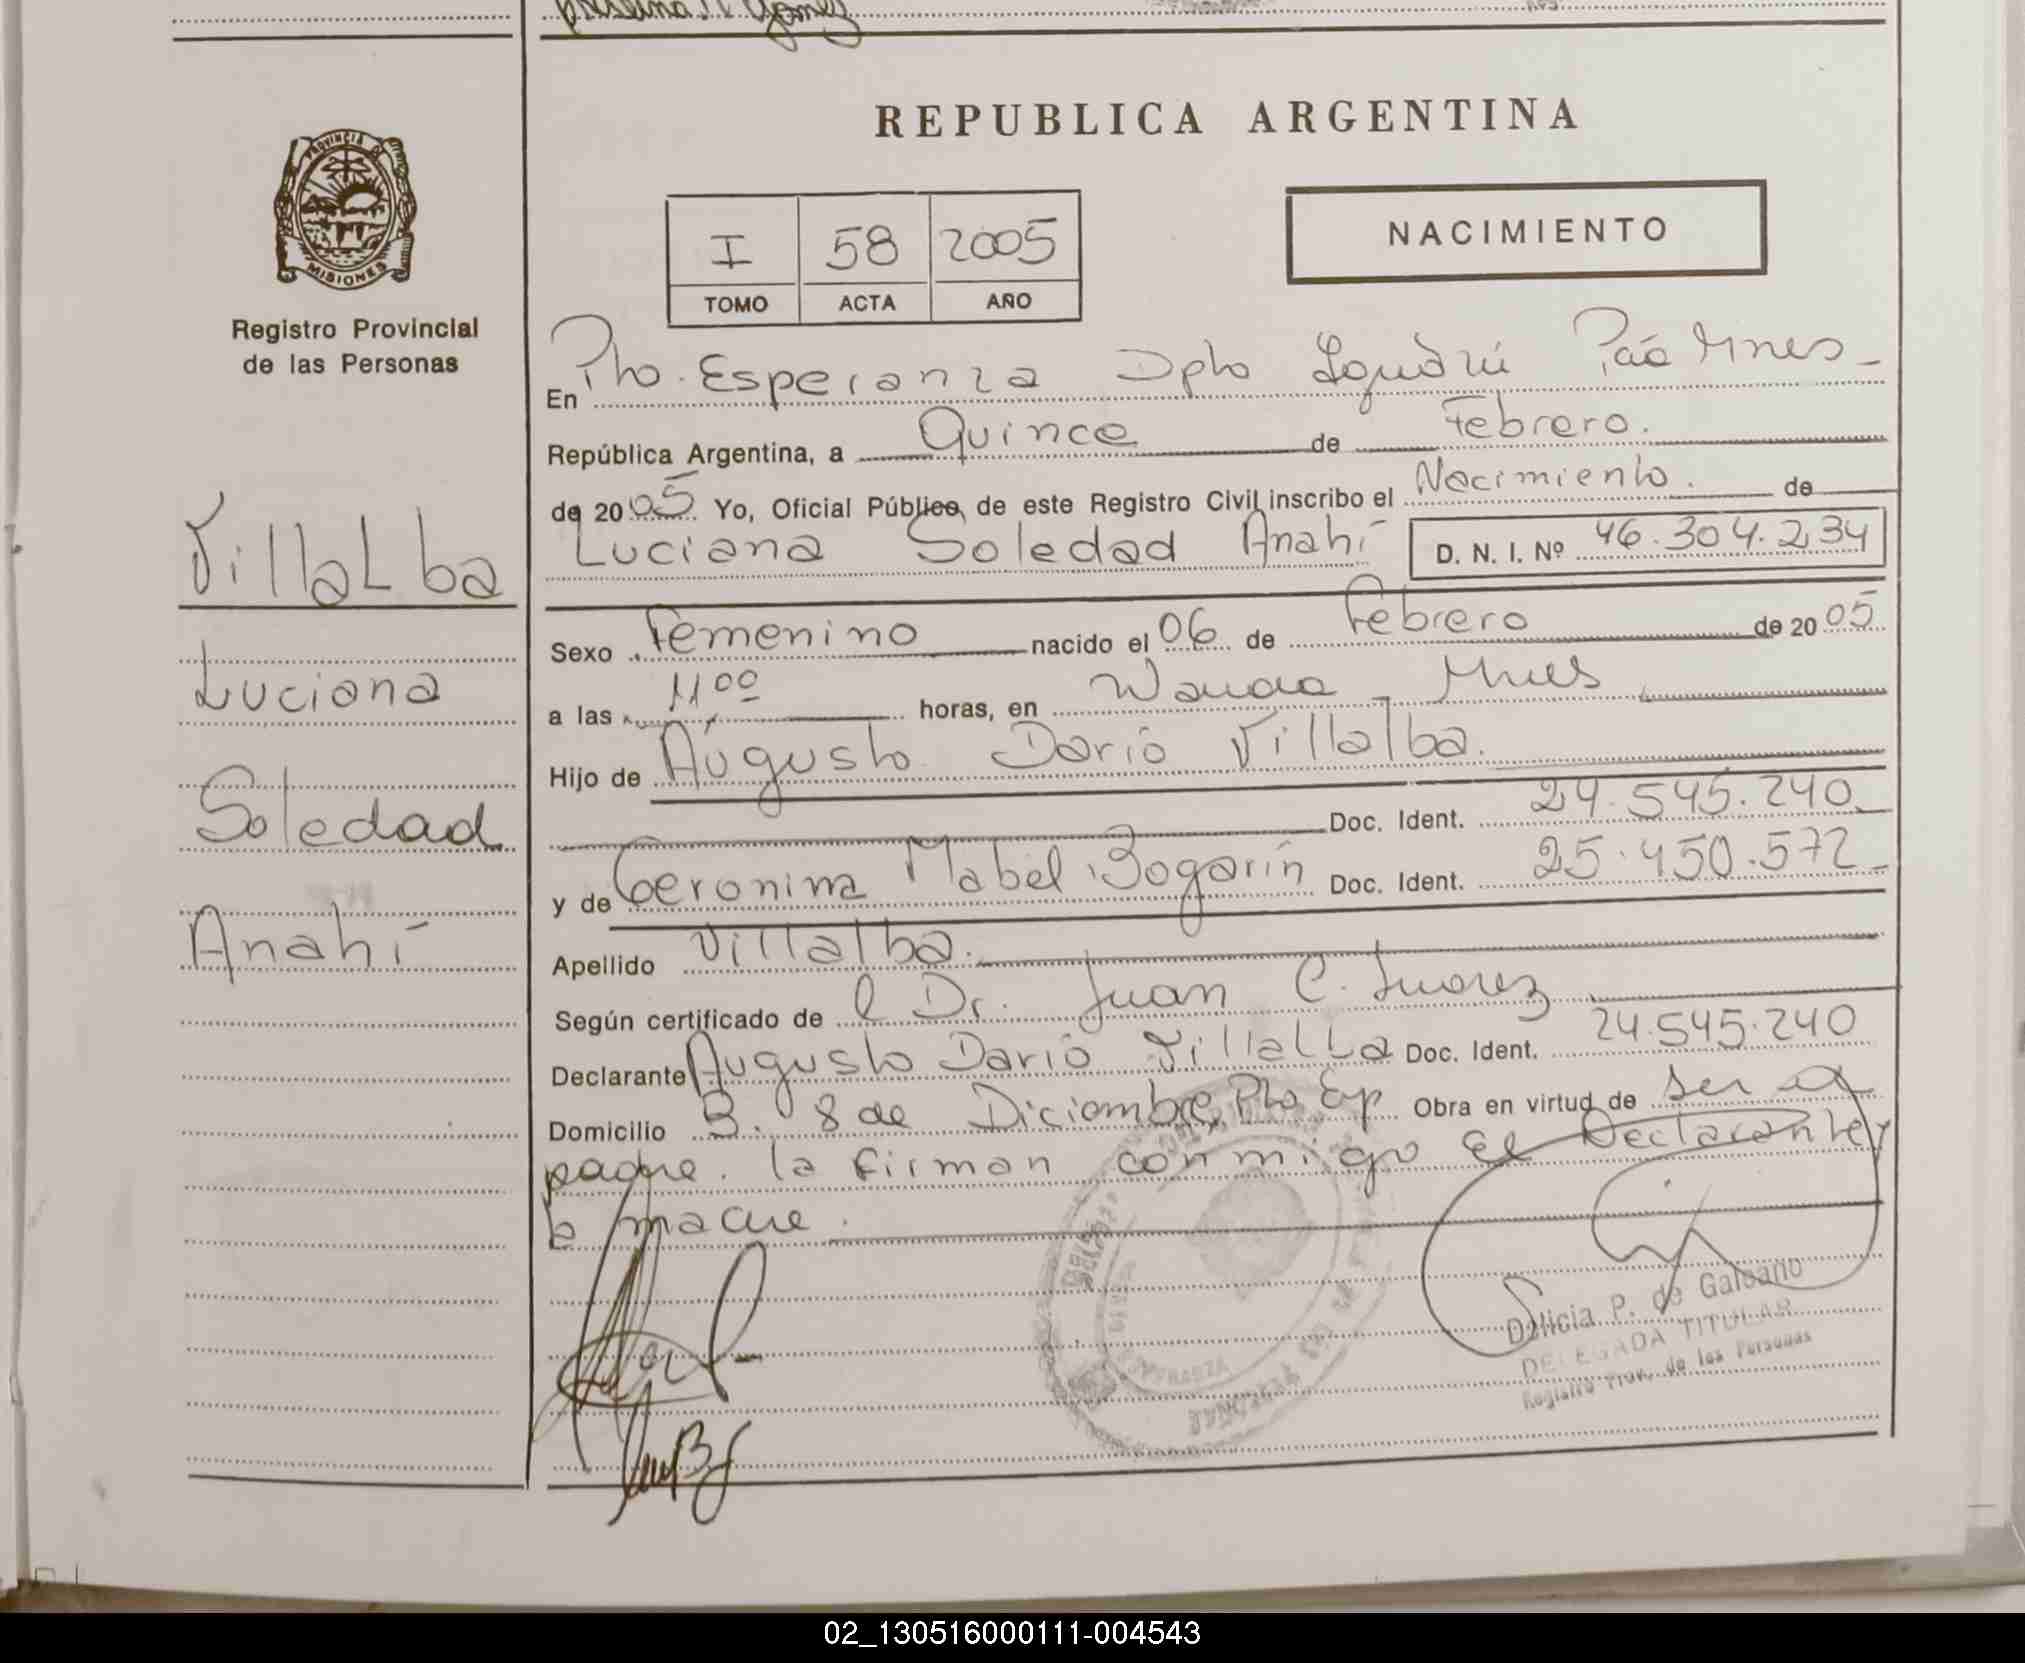 REPUBLICA ARGENTINA
PROVINCIA DE
MISIONES
Registro Provincial
de las Personas
I 58 2005
TOMO ACTA AÑO
NACIMIENTO
En Pto. Esperanza Dpto Iguazú Pcia Mnes-
República Argentina, a Quince de Febrero.
de 2005 Yo, Oficial Público, de este Registro Civil inscribo el Nacimiento. de
Luciana Soledad Anahí D. N. I. Nº 46.304.234
Sexo Femenino nacido el 06 de Febrero de 2005
a las 11ºº horas, en Wanda - Mnes
Hijo de Augusto Darío Villalba.
Doc. Ident. 24.545.240
y de Geronima Mabel Bogarín Doc. Ident. 25.450.572
Apellido Villalba.
Según certificado de l Dr. Juan C. Juarez
Declarante Augusto Darío Villalba Doc. Ident. 24.545.240
Domicilio B. 8 de Diciembre, Pto Esp Obra en virtud de ser el
padre. la firman conmigo el Declarante y
la madre.
Delicia P. de Galeano
DELEGADA TITULAR
Registro Prov. de las Personas
Villalba
Luciana
Soledad
Anahí
02_130516000111-004543